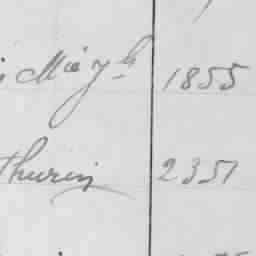 Mie Jh 1855
thurin 2351